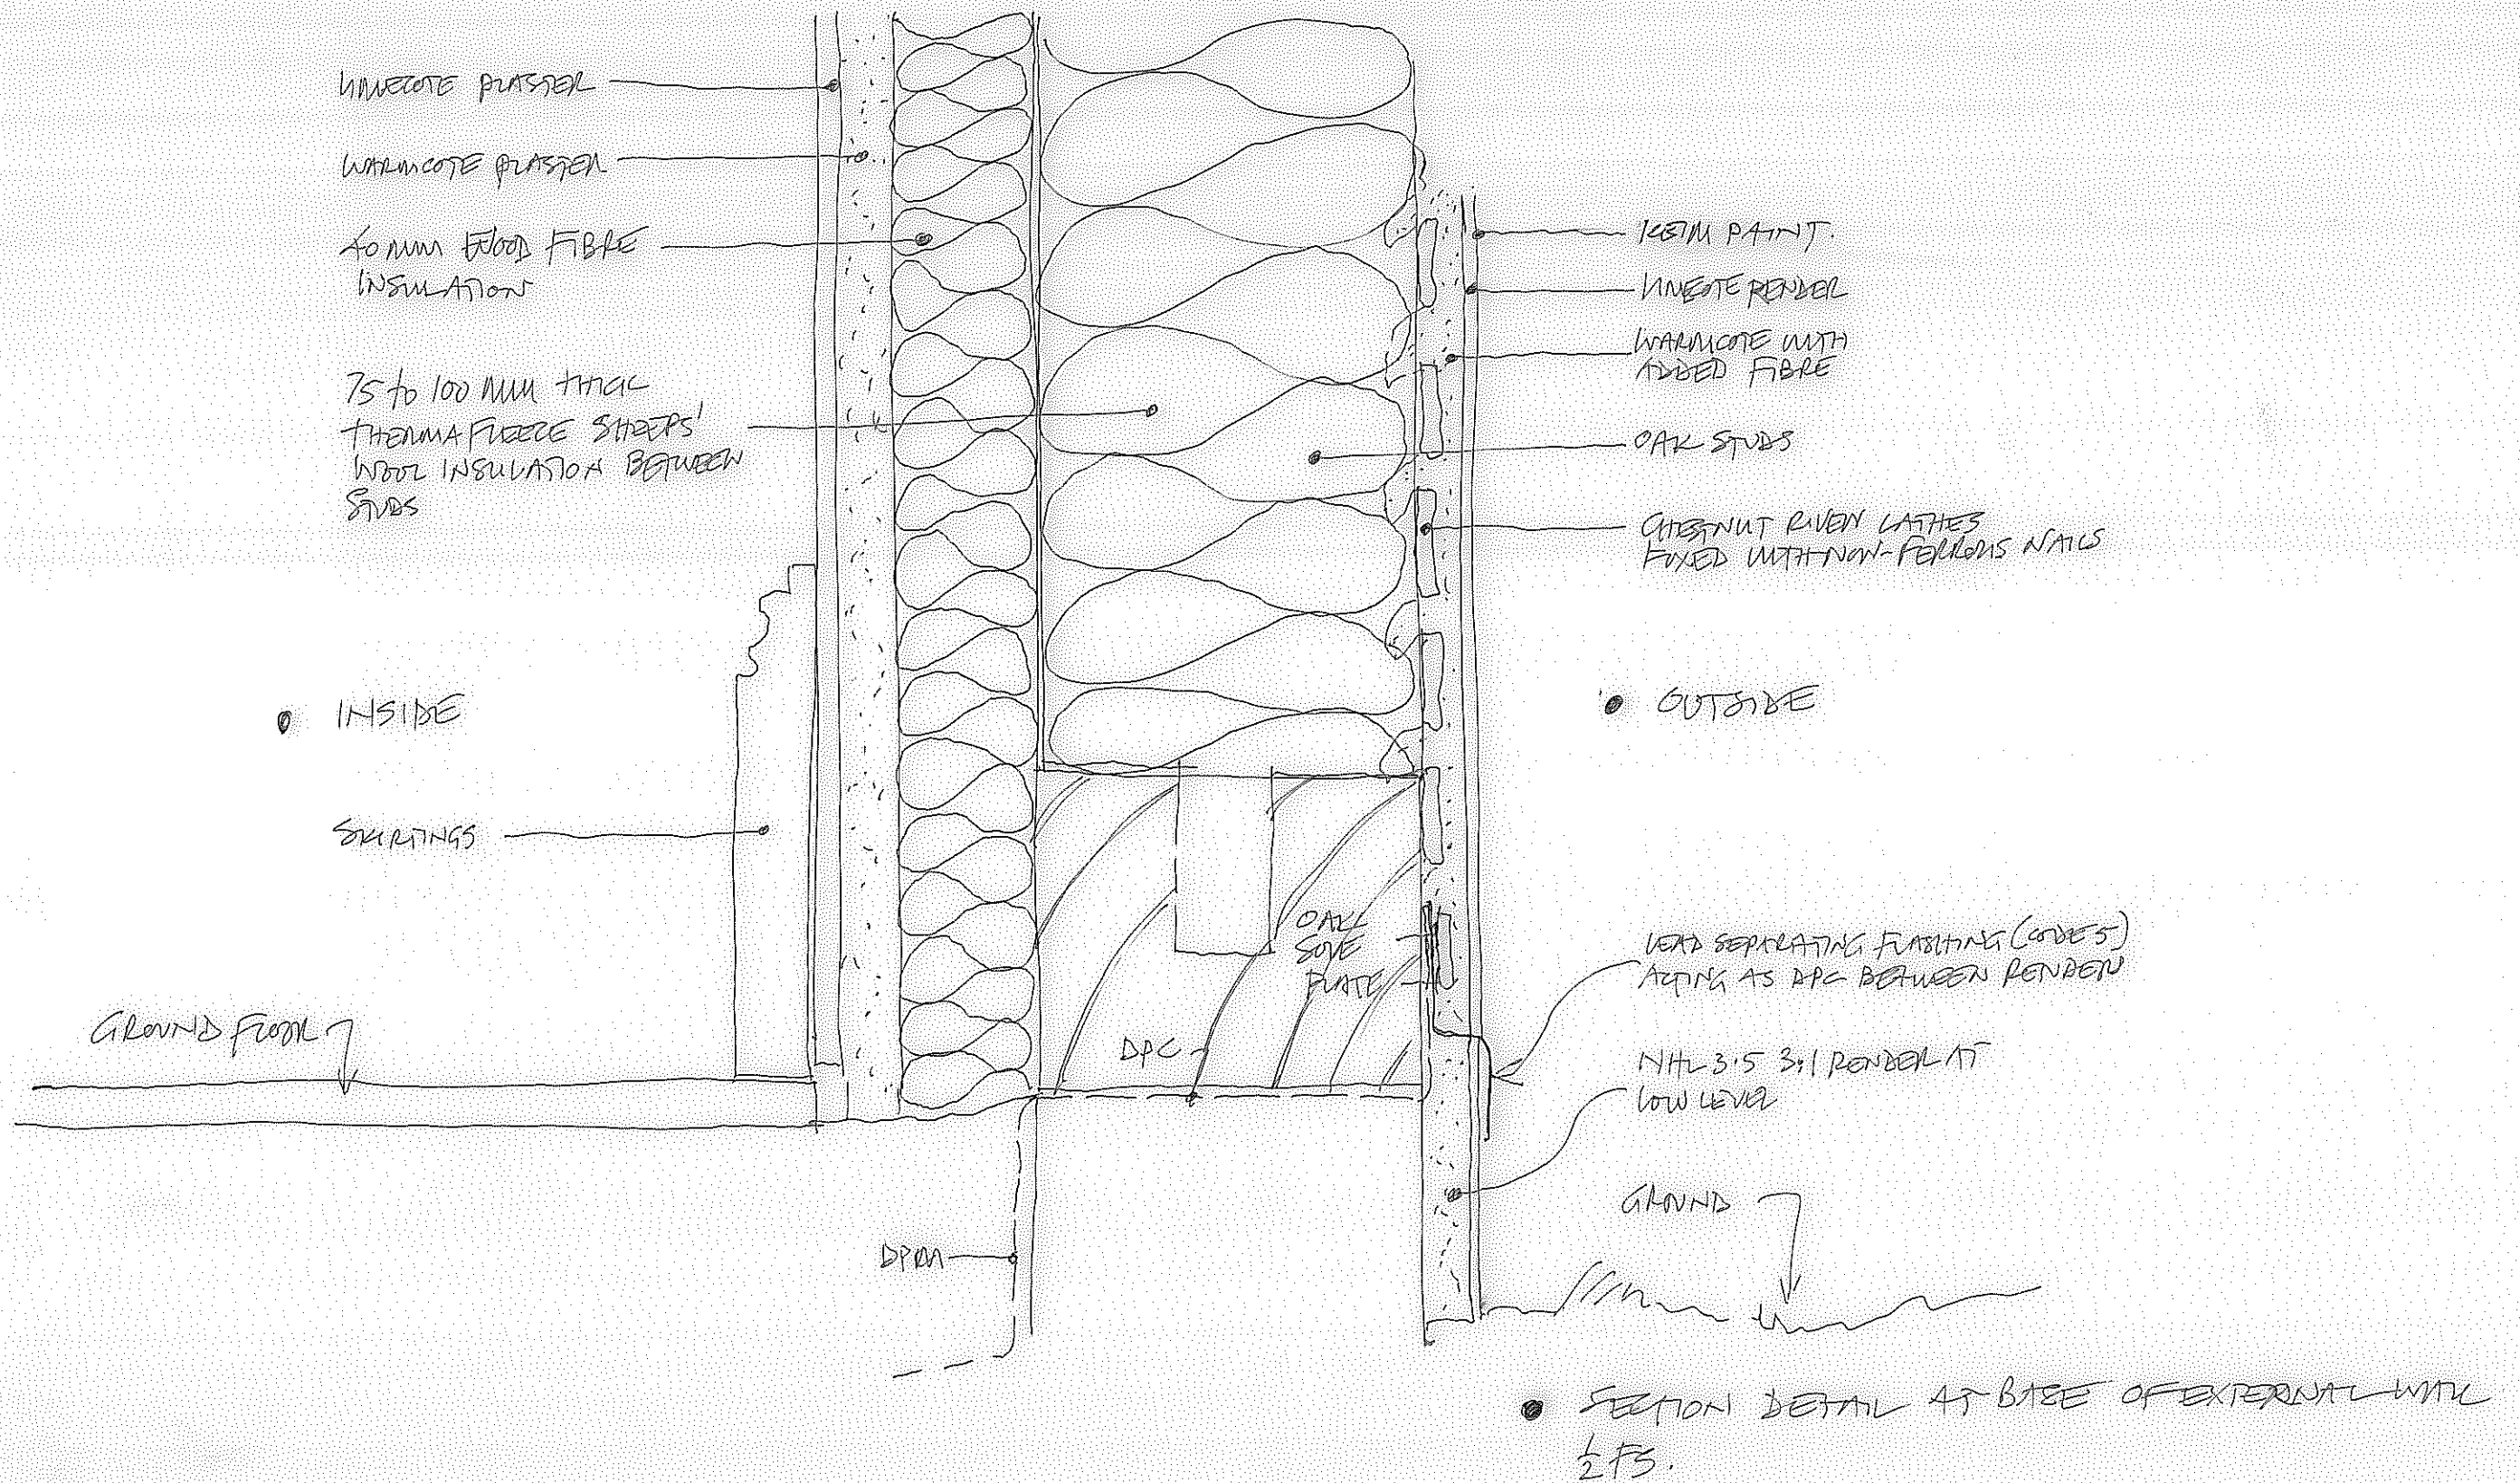 LIMECOTE PLASTER
WARMCOTE PLASTER
40 MM WOOD FIBRE
INSULATION
75 to 100 MM THICK
THERMAFLEECE SHEEPS'
WOOL INSULATION BETWEEN
STUDS
INSIDE
SKIRTINGS
GROUND FLOOR
DPM
DPC
OAK
SOLE
PLATE
KEIM PAINT.
LIMECOTE RENDER
WARMCOTE WITH
ADDED FIBRE
OAK STUDS
CHESTNUT RIVEN LATHES
FIXED WITH NON-FERROUS NAILS
OUTSIDE
LEAD SEPARATING FLASHING (CODE 5)
ACTING AS DPC BETWEEN RENDER
NHL 3.5 3:1 RENDER AT
LOW LEVEL
GROUND
SECTION DETAIL AT BASE OF EXTERNAL WALL
1/2 FS.